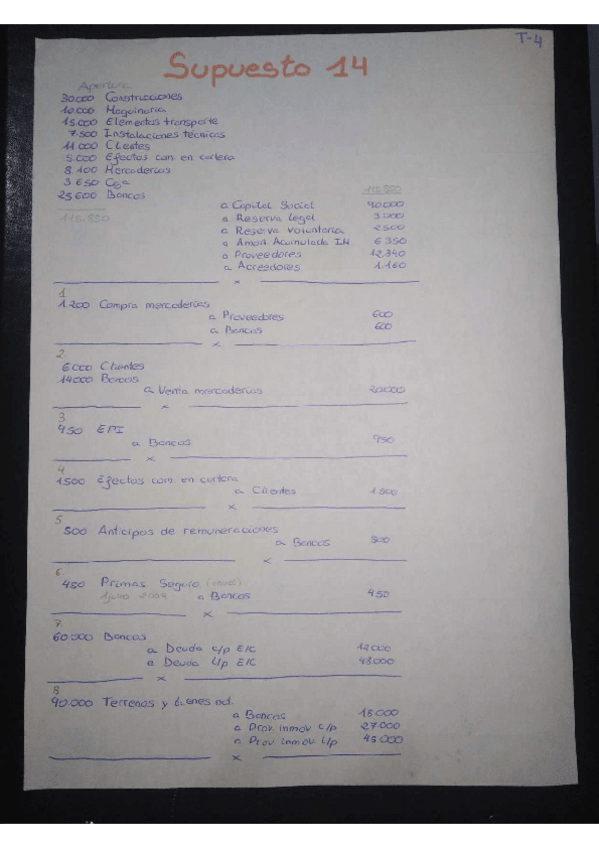 T-4
Supuesto 14
Apertura
30000 Construcciones
10.000 Maquinaria
15.000 Elementos transporte
7.500 Instalaciones técnicas
11.000 Clientes
5.000 Efectos com. en cartera
8.100 Mercaderías
3.650 Caja
25.600 Bancos
115.850 115.850
a Capital Social 90000
a Reserva Legal 3.000
a Reserva Voluntaria 2500
a Amort. Acumulada IM 6.350
a Proveedores 12.340
a Acreedores 1.160
x
1
1.200 Compra mercaderías
a Proveedores 600
a Bancos 600
x
2
6000 Clientes
14000 Bancos
a Venta mercaderías 20000
x
3
950 EPI
a Bancos 950
x
4
1500 Efectos com. en cartera
a Clientes 1500
x
5
500 Anticipos de remuneraciones
a Bancos 500
x
6
450 Primas Seguro (anual)
1 junio a Bancos 450
x
7
60.000 Bancos
a Deuda c/p E/C 12000
a Deuda L/p E/C 48000
x
8
90.000 Terrenos y bienes nat.
a Bancos 18000
a Prov. inmov c/p 27000
a Prov inmov L/p 45000
x